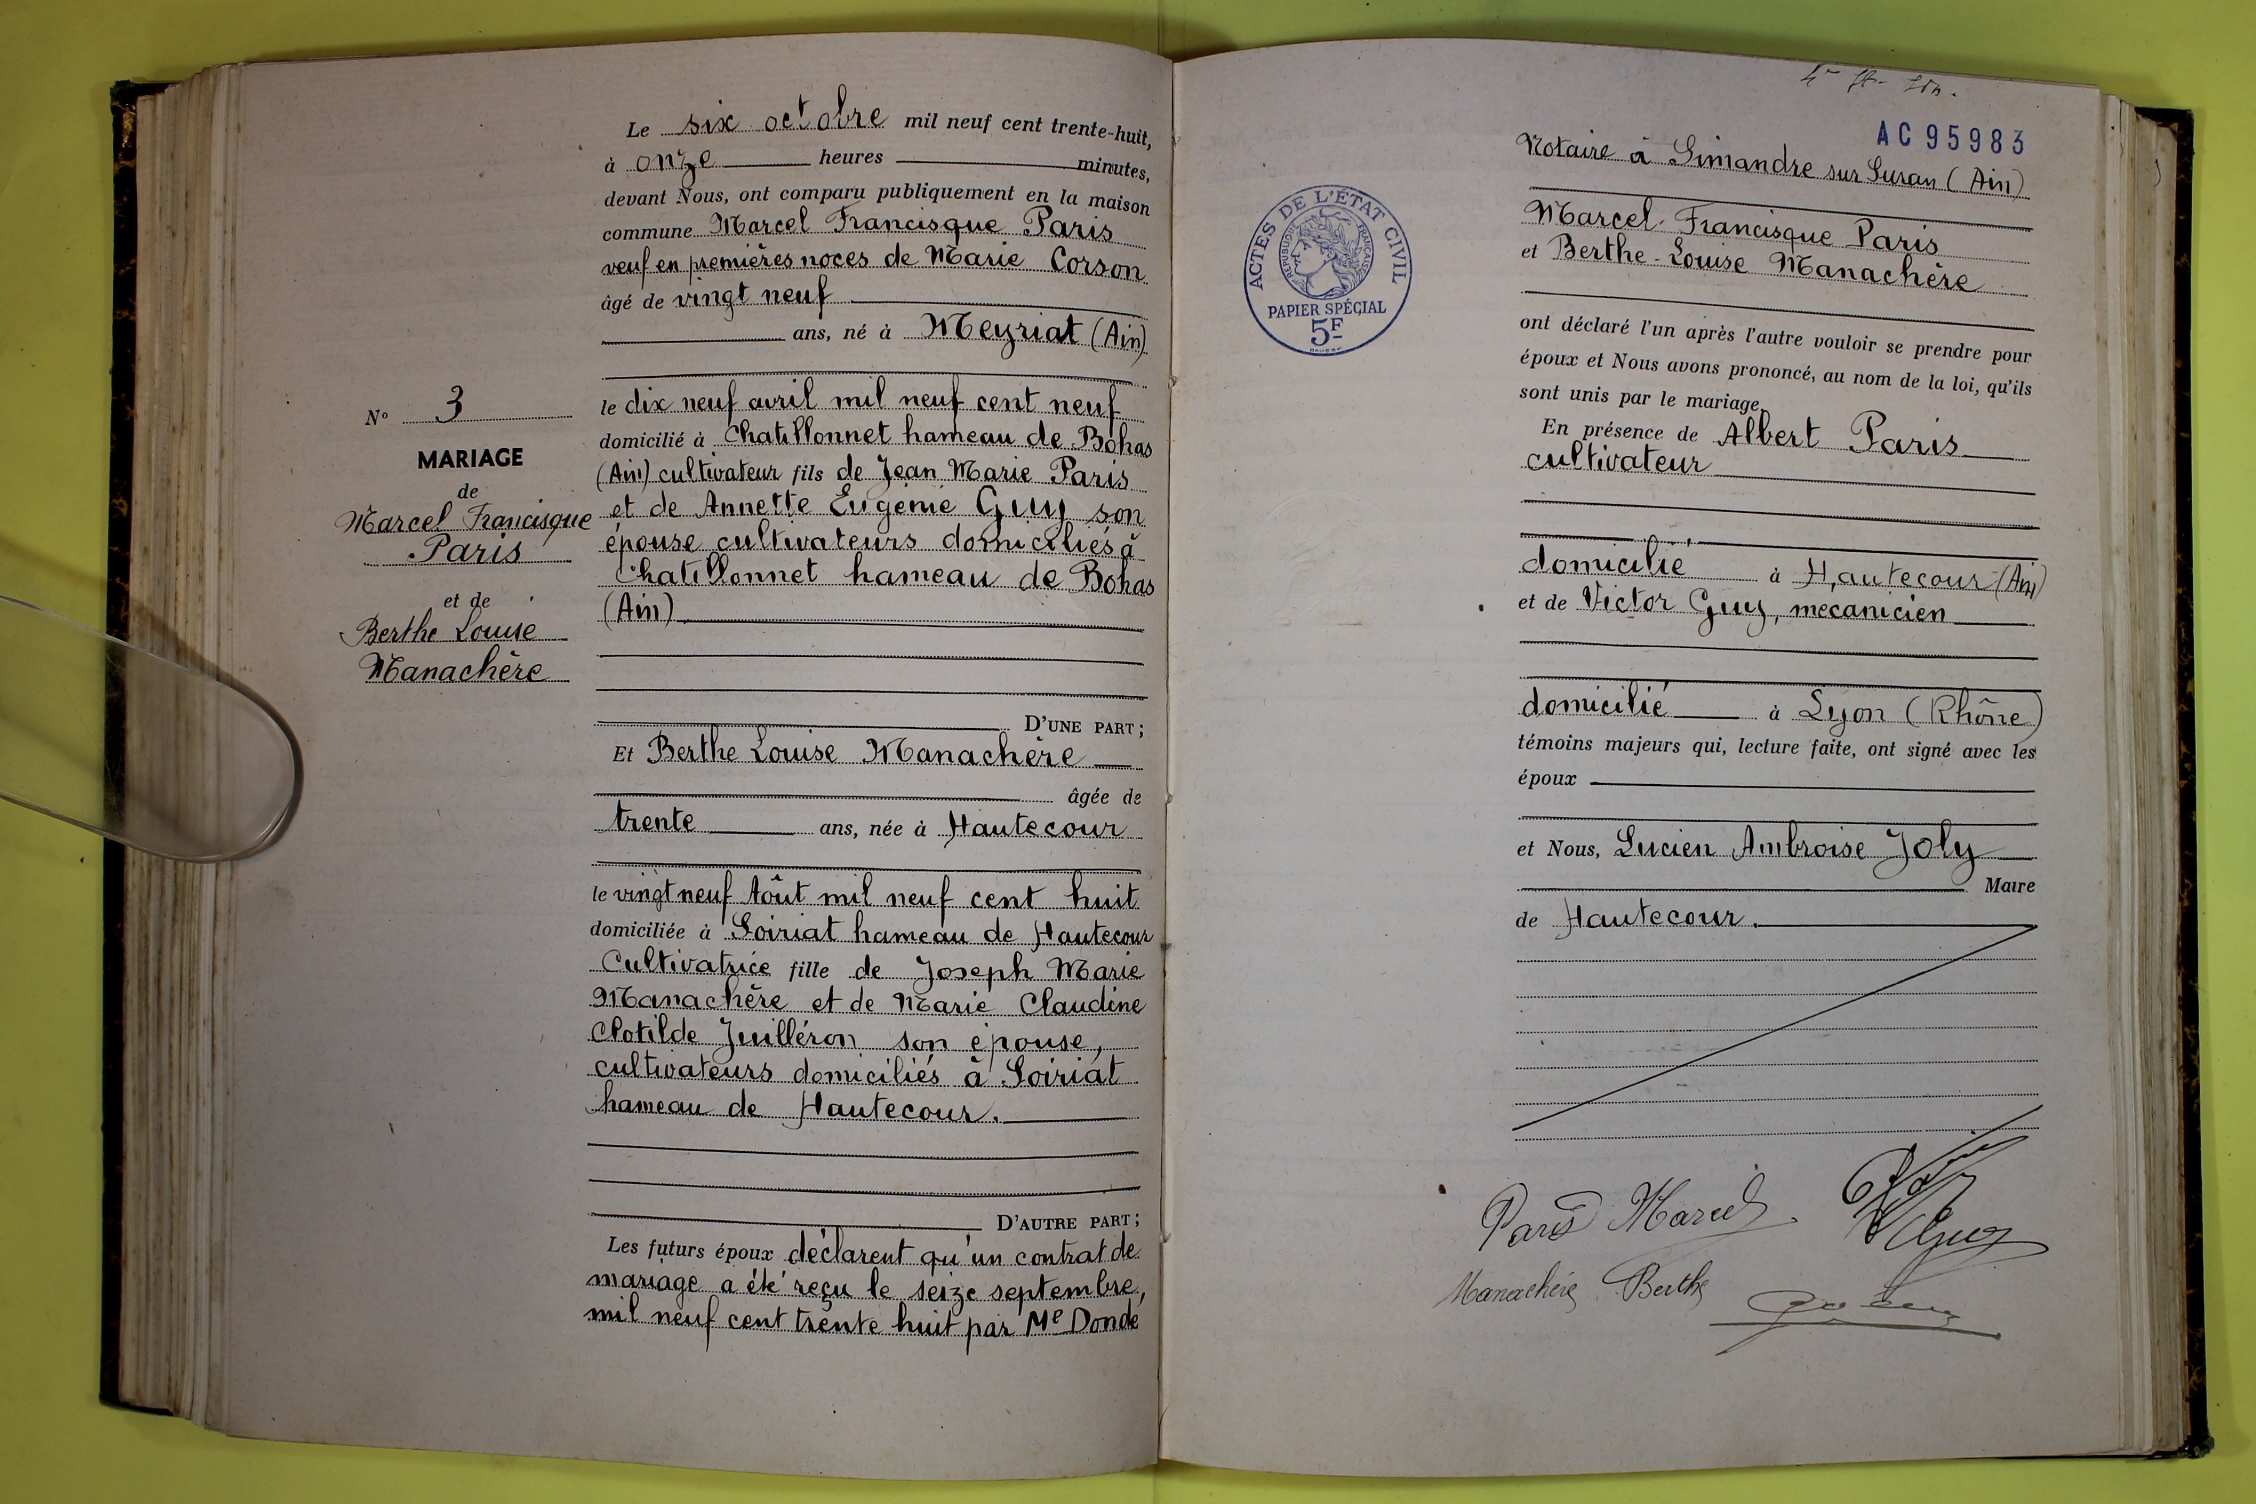 Le six octobre mil neuf cent trente-huit,
à onze heures minutes,
devant Nous, ont comparu publiquement en la maison
commune Marcel Francisque Paris
veuf en premières noces de Marie Corson
âgé de vingt neuf
ans, né à Meyriat (Ain)
le dix neuf avril mil neuf cent neuf
domicilié à Chatillonnet hameau de Bohas
(Ain) cultivateur fils de Jean Marie Paris
et de Annette Eugénie Guy son
épouse cultivateurs domiciliés à
Chatillonnet hameau de Bohas
(Ain)
D'UNE PART;
N° 3
MARIAGE
de
Marcel Francisque
Paris
et de
Berthe Louise
Manachère
Et Berthe Louise Manachère
âgée de
trente ans, née à Hautecour
le vingt neuf Aôut mil neuf cent huit
domiciliée à Soiriat hameau de Hautecour
Cultivatrice fille de Joseph Marie
Manachère et de Marie Claudine
Clotilde Juilléron son épouse,
cultivateurs domiciliés à Soiriat
hameau de Hautecour.
D'AUTRE PART;
Les futurs époux déclarent qu'un contrat de
mariage a été reçu le seize septembre,
mil neuf cent trente huit par Me Donde
AC95983
Notaire à Simandre sur Suran (Ain)
ACTES DE L'ÉTAT CIVIL
RÉPUBLIQUE FRANÇAISE
PAPIER SPÉCIAL
5F
Marcel Francisque Paris
et Berthe-Louise Manachère
ont déclaré l'un après l'autre vouloir se prendre pour
époux et Nous avons prononcé, au nom de la loi, qu'ils
sont unis par le mariage.
En présence de Albert Paris
cultivateur
domicilié à Hautecour (Ain)
et de Victor Guy, mecanicien
domicilié à Lyon (Rhône)
témoins majeurs qui, lecture faite, ont signé avec les
époux
et Nous, Lucien Ambroise Joly
Maire
de Hautecour.
Paris Marcel
Guy
Manachère Berthe